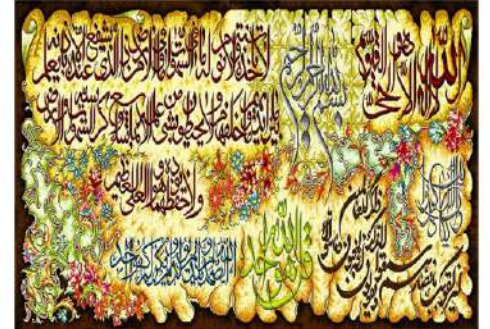 بسم الله الرحمن الرحيم
الله لا إله إلا هو الحي القيوم
لا تأخذه سنة ولا نوم له ما في السموات وما في الأرض من ذا الذي يشفع عنده إلا بإذنه يعلم
ما بين أيديهم وما خلفهم ولا يحيطون بشيء من علمه إلا بما شاء وسع كرسيه السموات والأرض
ولا يؤده حفظهما وهو العلي العظيم
قل هو الله أحد
الله الصمد لم يلد ولم يولد ولم يكن له كفوا أحد